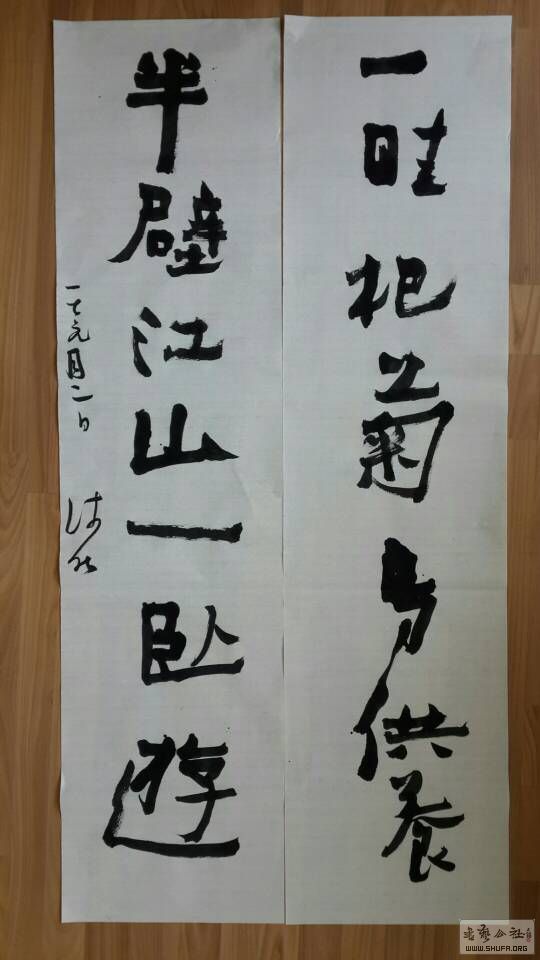 一畦杞菊为供養
半壁江山一卧遊
一七元月二日
书艺公社
WWW.SHUFA.ORG